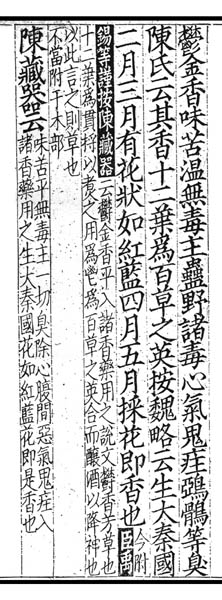 鬱金香味苦温無毒主蠱野諸毒心氣鬼疰鵶鶻等臭
陳氏云其香十二葉為百草之英按魏略云生大秦國
二月三月有花狀如紅藍四月五月採花即香也今附臣禹
錫等謹按陳藏器云鬱金香平入諸香藥用之說文鬱香芳草也
十二葉為貫將以煑之用為鬯為百草之英合而釀酒以降神也
以此言之則草也
不當附于木部
陳藏器云味苦平無毒主一切臭除心腹間惡氣鬼疰入
諸香藥用之生大秦國花如紅藍花即是香也